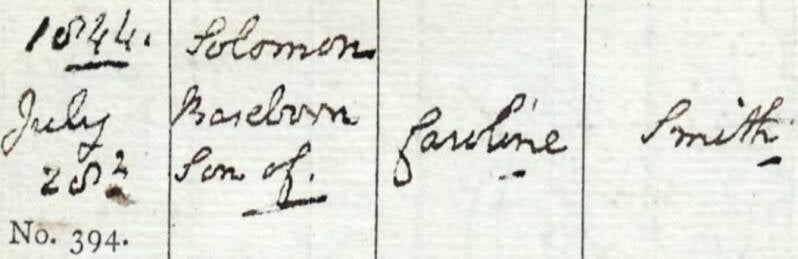 1844. Solomon
July Baseborn Caroline Smith
28th Son of.
No. 394.